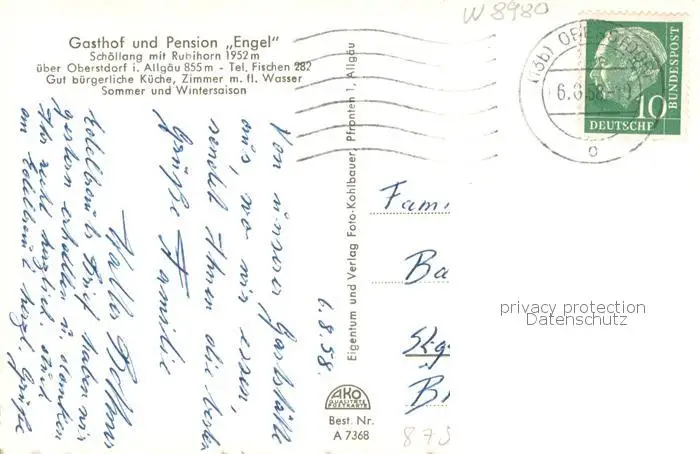 Gasthof und Pension „Engel"
Schöllang mit Rubihorn 1952 m
über Oberstdorf i. Allgäu 855 m - Tel. Fischen 282
Gut bürgerliche Küche, Zimmer m. fl. Wasser
Sommer und Wintersaison
W 8980
(13b) OBERSTDORF
6.8.58
DEUTSCHE
BUNDESPOST
10
6.8.58.
Von unserer Gaststätte
aus, wo wir essen,
sendet Ihnen die besten
Grüße Familie
Edelbrunn's Brief haben wir
gestern erhalten u. danken
Ihr recht herzlich. Auch
an Edelbrunn's herzl. Grüße
Eigentum und Verlag Foto-Kohlbauer, Pfronten 1, Allgäu
Fam
Ba
AKO
QUALITÄTS
POSTKARTE
Best. Nr.
A 7368
privacy protection
Datenschutz